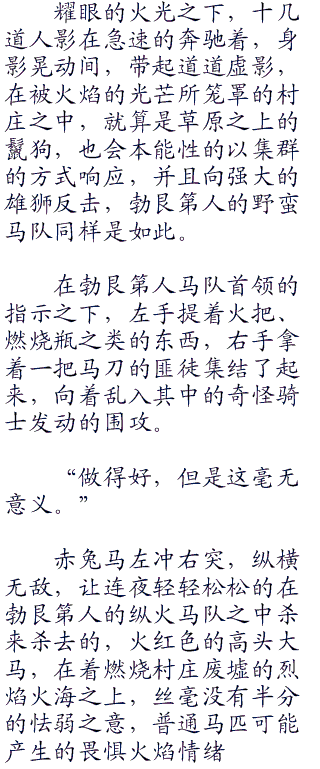 耀眼的火光之下，十几
道人影在急速的奔驰着，身
影晃动间，带起道道虚影，
在被火焰的光芒所笼罩的村
庄之中，就算是草原之上的
鬣狗，也会本能性的以集群
的方式响应，并且向强大的
雄狮反击，勃艮第人的野蛮
马队同样是如此。
在勃艮第人马队首领的
指示之下，左手提着火把、
燃烧瓶之类的东西，右手拿
着一把马刀的匪徒集结了起
来，向着乱入其中的奇怪骑
士发动的围攻。
“做得好，但是这毫无
意义。”
赤兔马左冲右突，纵横
无敌，让连夜轻轻松松的在
勃艮第人的纵火马队之中杀
来杀去的，火红色的高头大
马，在着燃烧村庄废墟的烈
焰火海之上，丝毫没有半分
的怯弱之意，普通马匹可能
产生的畏惧火焰情绪